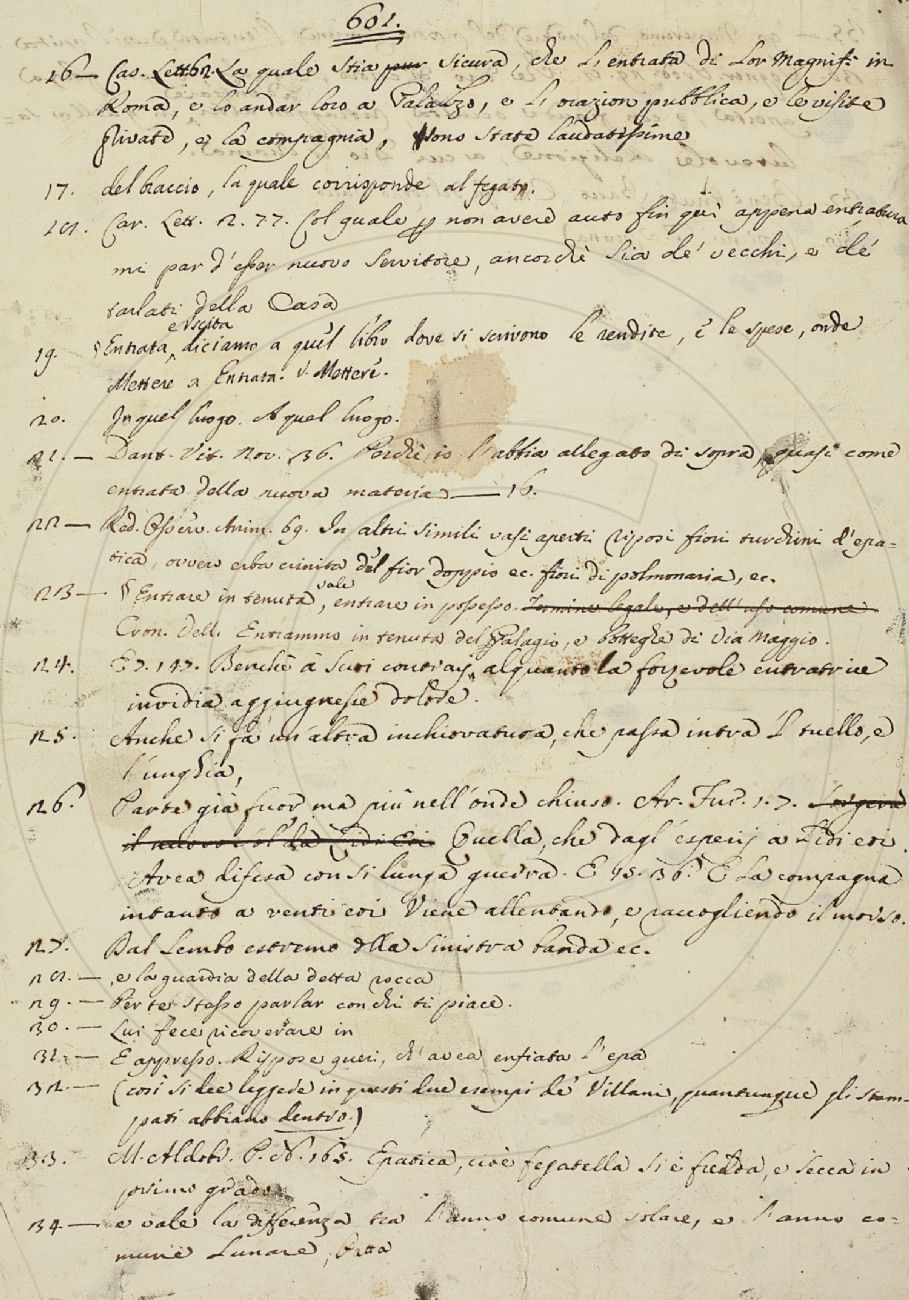 601.
16 — Cas. Lett. 62. La quale stia pur sicura, che l'entrata di Lor Magnif: in
Roma, e lo andar loro a Palazzo, e l'orazion pubblica, e le visite
private, e la compagnia, sono state laudatissime
17. del braccio, la quale corrisponde al fegato.
18. Car. Lett. 2. 77. Col quale p non avere auto fin quì appena entratura
mi par d'esser nuovo servitore, ancorchè sia de' vecchi, e de'
tarlati della Casa
e uscita
19. § Entrata, diciamo a quel libro dove si scrivono le rendite, e le spese, onde
Mettere a Entrata. V. Mettere.
20. In quel luogo. A quel luogo.
21. — Dant. Vit. Nov. 36. Perchè io l'abbia allegato di sopra, quasi come
entrata della nuova materia — 16.
22 — Red. Osserv. Anim. 69. In altri simili vasi aperti riposi fiori turchini d'epa-
tica, ovvero erba trinita del fior doppio ec. fiori di polmonaria, ec.
vale
23 — § Entrare in tenuta, entrare in possesso. Termine legale, e dell'uso comune
Cron. Vell. Entrammo in tenuta del Palagio, e botteghe di Via Maggio.
24. E 7. 147. Benchè a' suoi contrarj alquanto la forzevole entratrice
invidia aggiugnesse dolore.
25. Anche si fa un'altra inchiovatura, che passa intra 'l tuello, e
l'unghia,
26. Parte già fuor, ma più nell'onde chiuso. Ar. Fur. 1. 7.
Quella, che dagl'esperij a' lidi eoi
Avea difesa con sì lunga guerra. E 45. 36. E la compagna
intanto a' venti eoi Viene allentando, e raccogliendo il morso.
27. Dal lembo estremo della sinistra banda ec.
28. — , e la guardia della detta rocca
29. — Per te stesso parlar con chi ti piace.
30. — Lui fece ricoverare in
31. — E appresso. Rispose queri, ch'avea enfiata l'epa
32. — (così si dee leggere in questi due esempi de' Villani, quantunque gli stam-
pati abbiano dentro.)
33. M. Aldobr. P. N. 165. Epatica, cioè fegatella si è fredda, e secca in
primo grado.
34 — e vale la differenza tra l'anno comune solare, e l'anno co-
mune Lunare, detta